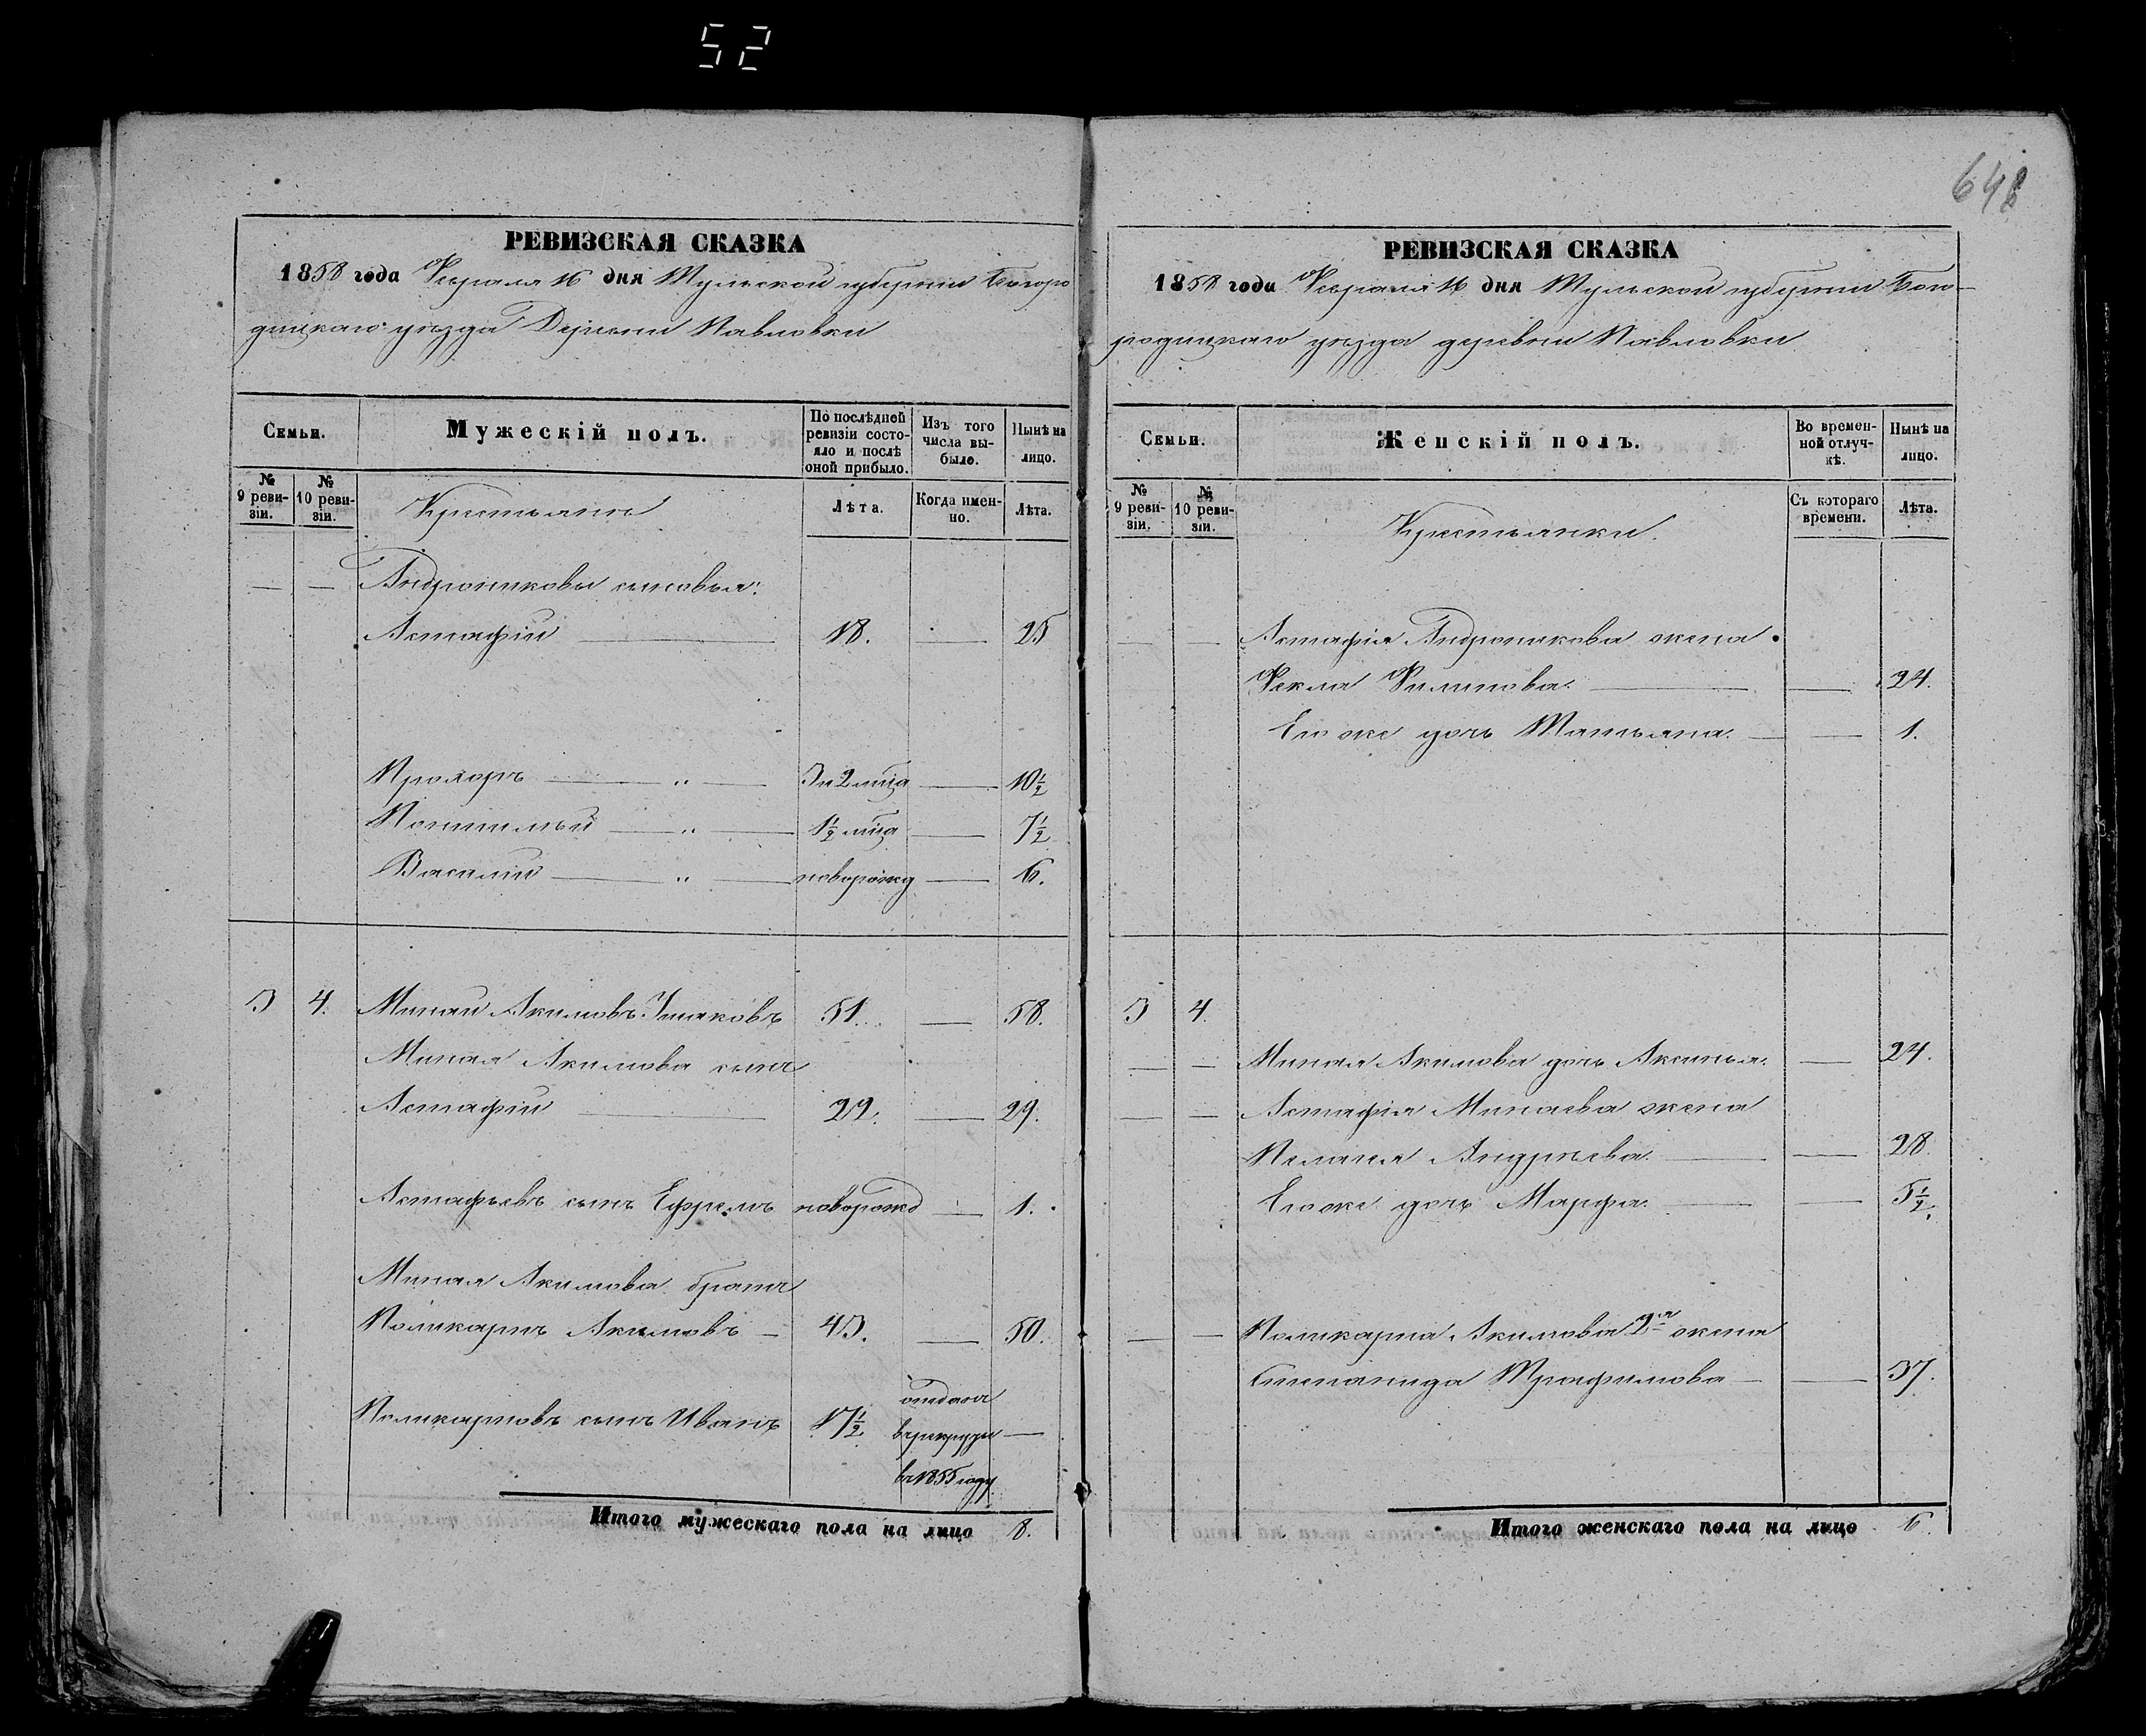 52
648
РЕВИЗСКАЯ СКАЗКА
1858 года Февраля 16 дня Тульской губернии Богоро
дицкаго уезда Деревни Павловки
Семьи.
Мужескій полъ.
По послѣдней ревизіи состояло и послѣ оной прибыло.
Изъ того числа выбыло.
Нынѣ на лицо.
№ 9 ревизіи.
№ 10 ревизіи.
Крестьяне
Лѣта.
Когда именно.
Лѣта.
— — Андрониковы сыновья:
Астафій — 18. — 25
Прохоръ — " — 3 и 2 мца — 10½
Василій — " — новорожд — 6.
3 4. Минай Акимовъ 51. — 58.
Миная Акимова сынъ
Астафій — 22. — 29.
Астафьевъ сынъ Ефремъ новорожд — 1.
Миная Акимова братъ
Поликарпъ Акимовъ — 43. — 50.
отданъ
Поликарповъ сынъ Иванъ 17½ в рекруты —
въ 1855 году
Итого мужескаго пола на лицо 8.
РЕВИЗСКАЯ СКАЗКА
1858 года Февраля 16 дня Тульской губернии Бого-
родицкаго уезда деревни Павловки
Семьи.
Женскій полъ.
Во временной отлучкѣ.
Нынѣ на лицо.
№ 9 ревизіи.
№ 10 ревизіи.
Крестьянки.
Съ котораго времени.
Лѣта.
— — Астафія Андроникова жена
Фекла Филипова. — — 24.
Ево же дочь Татьяна. — — 1.
3 4.
— — Миная Акимова дочь Аксинья. — 24.
— — Астафія Минаева жена
Пелагея Андреева. — — 28.
Ево же дочь Марфа. — — 5½.
— — Поликарпа Акимова 2я жена
Степанида Трафимова — — 37.
Итого женскаго пола на лицо 6.